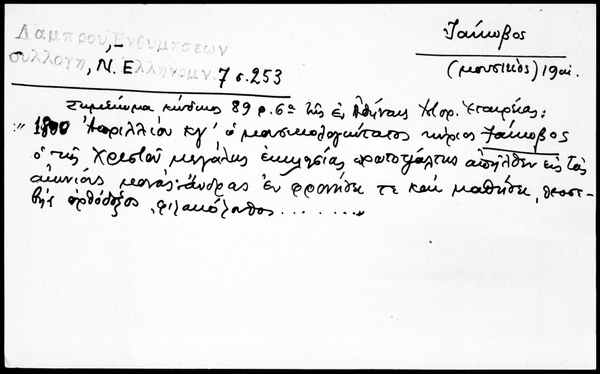 Λάμπρου, Ενθυμήσεων
συλλογή, Ν. Ελληνομν. 7 σ. 253
Ἰάκωβος
(μουσικός) 19 αἰ.
Σημείωμα κώδικος 89 φ. 6α τῆς ἐν Ἀθήναις Ἱστορ. Ἑταιρείας:
"1800 Ἀπριλλίου κγ' ὁ μουσικολογιώτατος κύριος Ἰάκωβος
ὁ τῆς Χριστοῦ μεγάλης ἐκκλησίας πρωτοψάλτης ἀπῆλθεν εἰς τὰς
αἰωνίους μονάς· ἄνδρας ἐν φρονήσει τε καὶ μαθήσει, θεοσε-
βὴς ὀρθόδοξος, φιλακόλουθος ........"